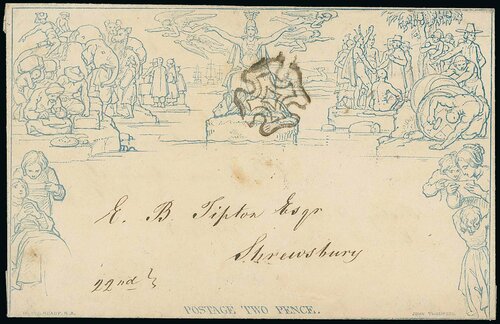 E. B. Tipton Esqr
Shrewsbury
22nd
POSTAGE TWO PENCE.
W. MULREADY, R.A.
JOHN THOMPSON